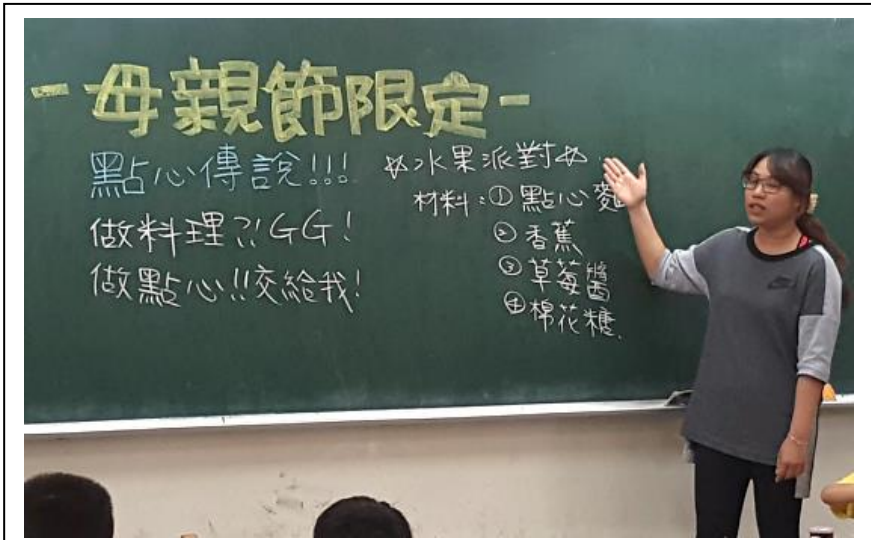 -母親節限定-
點心傳說!!!
做料理?!GG!
做點心!!交給我!
☆水果派對☆
材料:①點心麵
②香蕉
③草莓醬
④棉花糖.